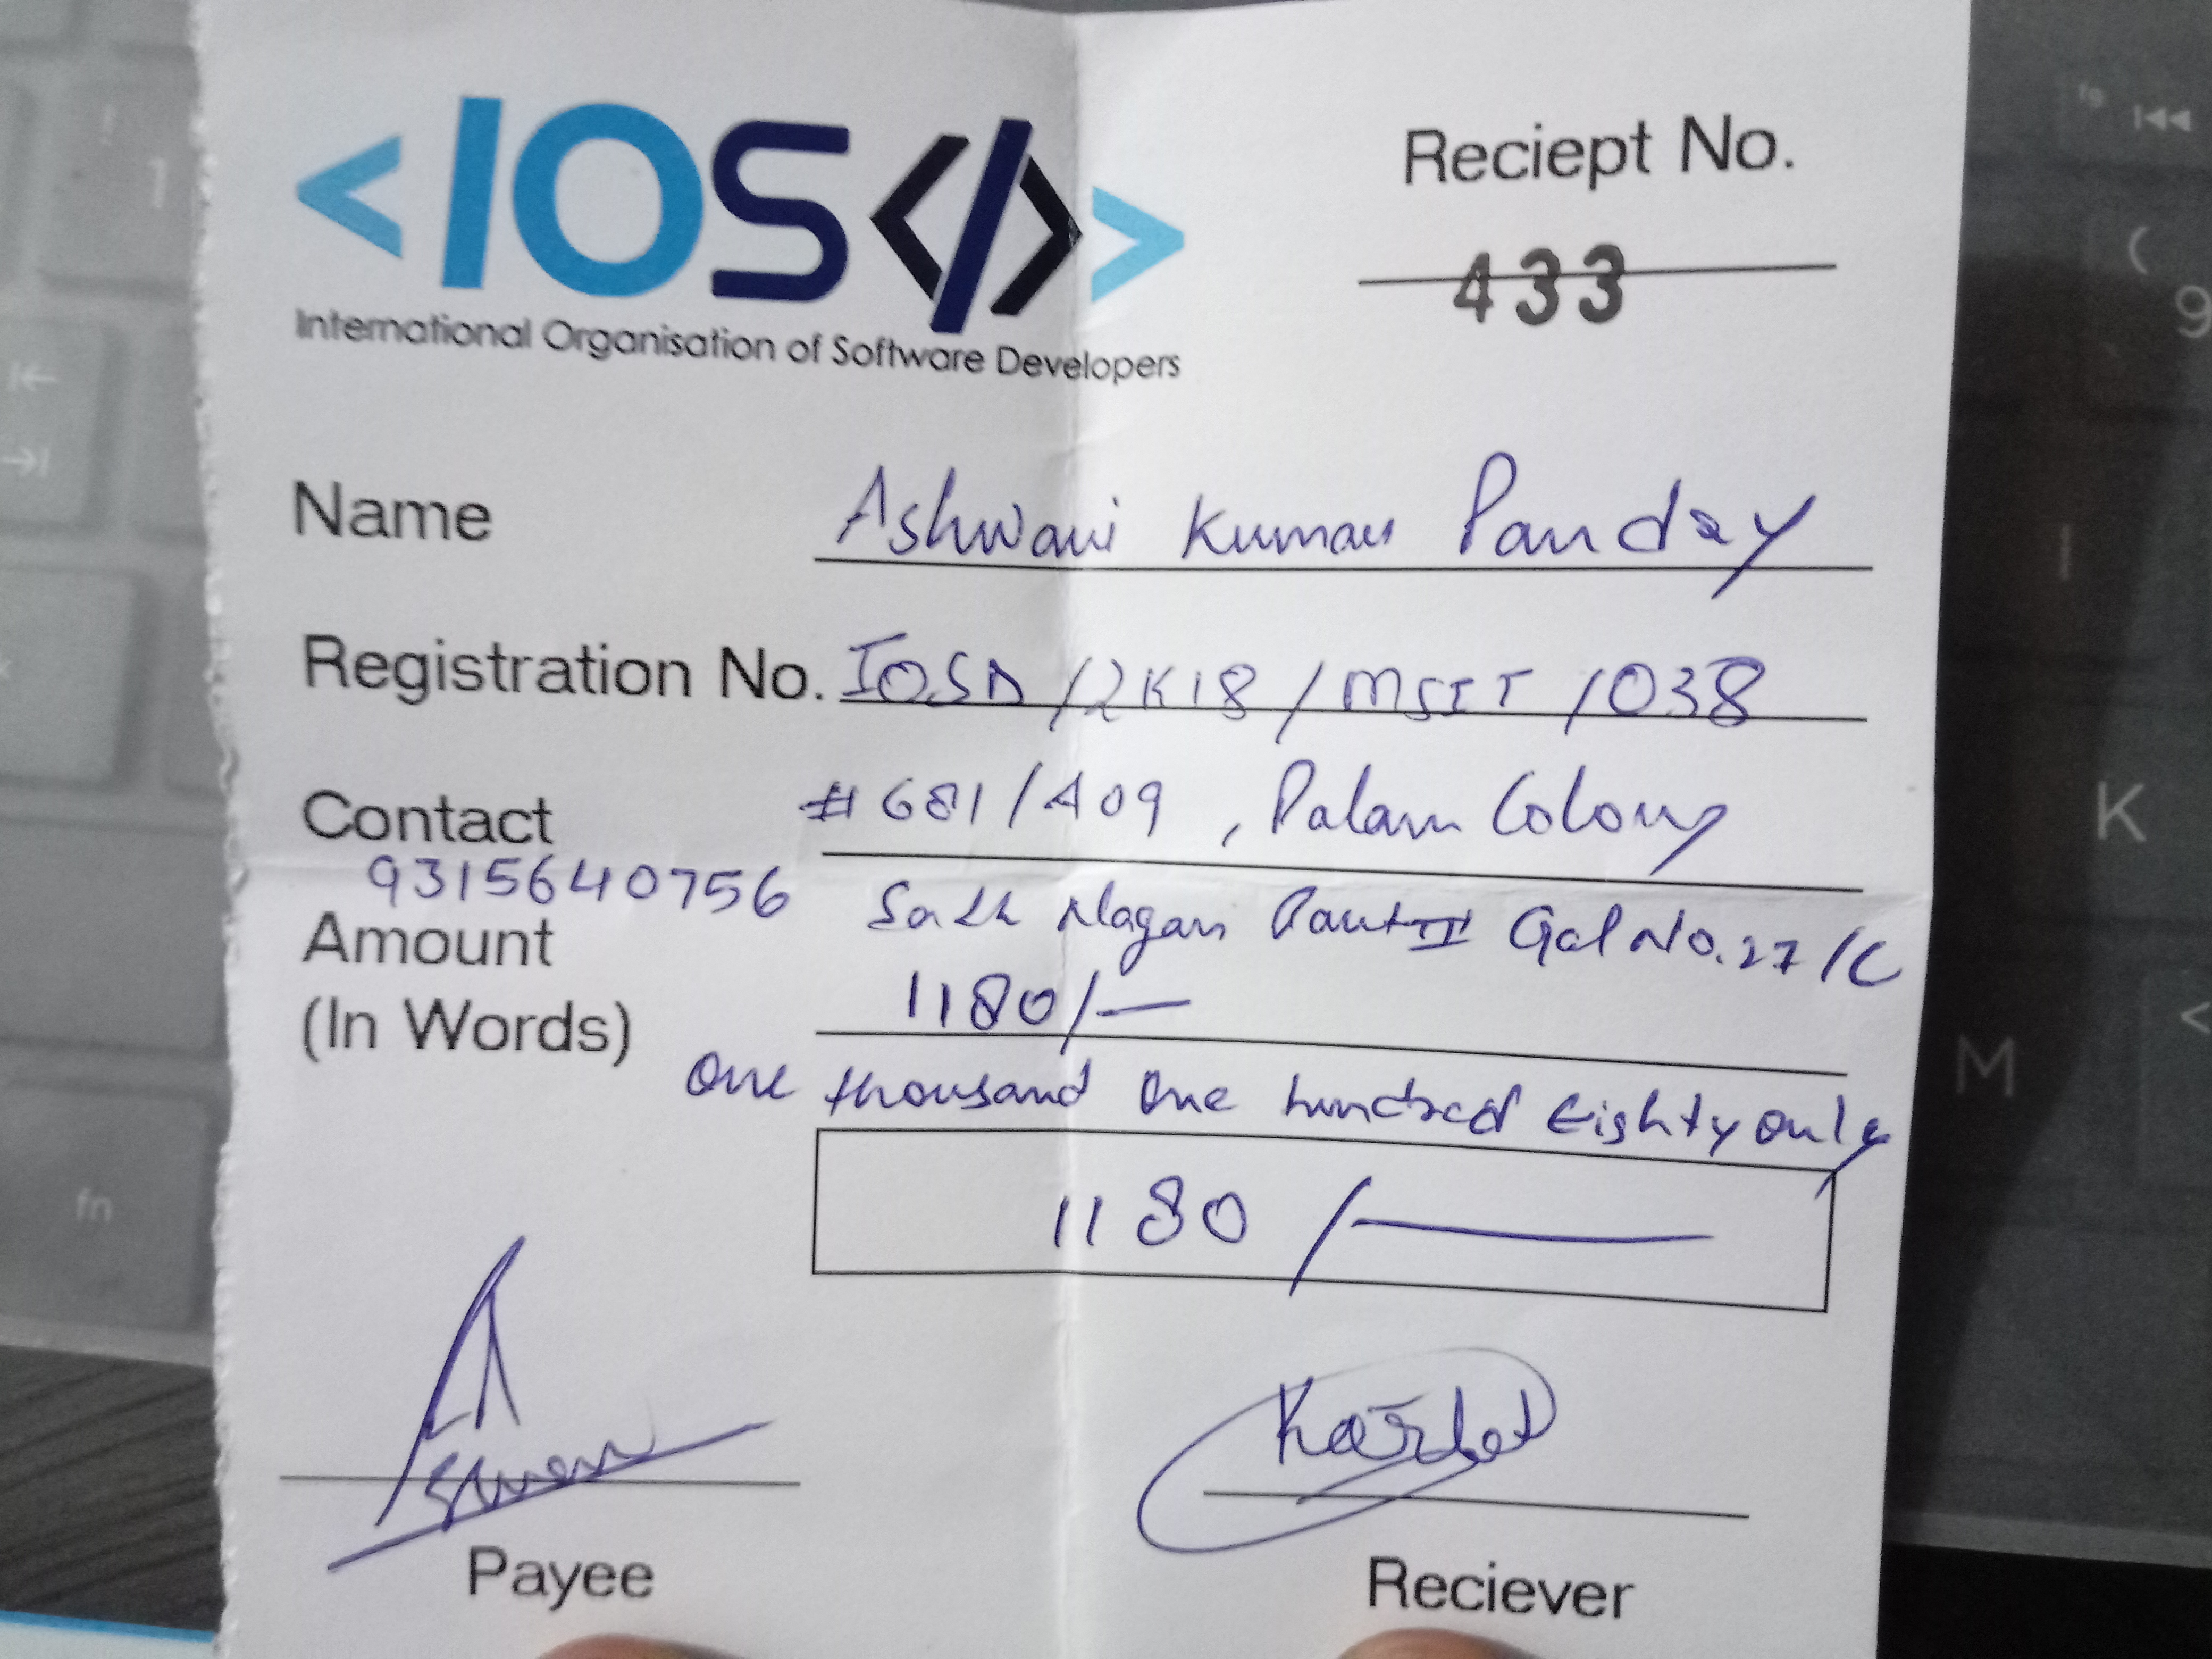 <IOS</>>
International Organisation of Software Developers
Reciept No.
433
Name Ashwani Kumar Panday
Registration No. IOSD/2K18/MSIT/038
Contact #681/A09, Palam Colony
9315640756 Nagar Part II Gal No. 27/C
Amount
(In Words) 1180/-
One thousand One hundred Eighty only
1180/-
Payee
Reciever